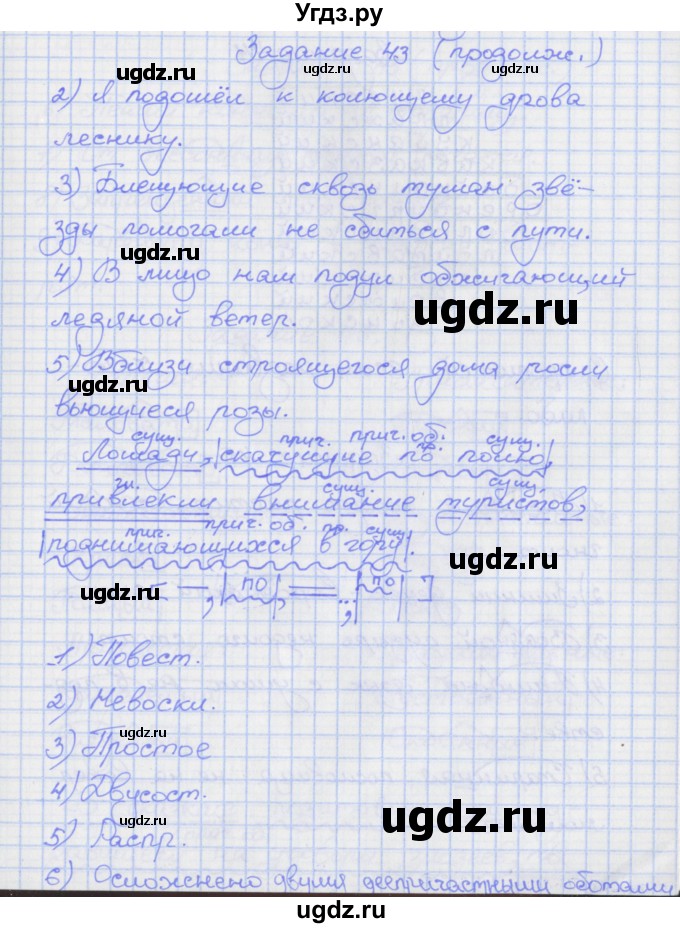 Угдз.ру
Задание 43 (продолж.)
2) Я подошёл к колющему дрова
леснику.
3) Блещующие сквозь туман звё-
зды помогали не сбиться с пути.
4) В лицо нам подул обжигающий
ледяной ветер.
5) Вблизи строящегося дома росли
вьющиеся розы.
сущ. прич. прич. об. пр. сущ.
Лошади, |скачущие по полю|,
гл. сущ. сущ.
привлекли внимание туристов,
прич. прич. об. пр. сущ.
|поднимающихся в гору|.
[ —, |по|, = ..., |по| ]
1) Повест.
2) Невоскл.
3) Простое
4) Двусост.
5) Распр.
6) Осложнено двумя деепричастными оботами
ugdz.ru
ugdz.ru
ugdz.ru
ugdz.ru
ugdz.ru
ugdz.ru
ugdz.ru
ugdz.ru
ugdz.ru
ugdz.ru
ugdz.ru
ugdz.ru
ugdz.ru
ugdz.ru